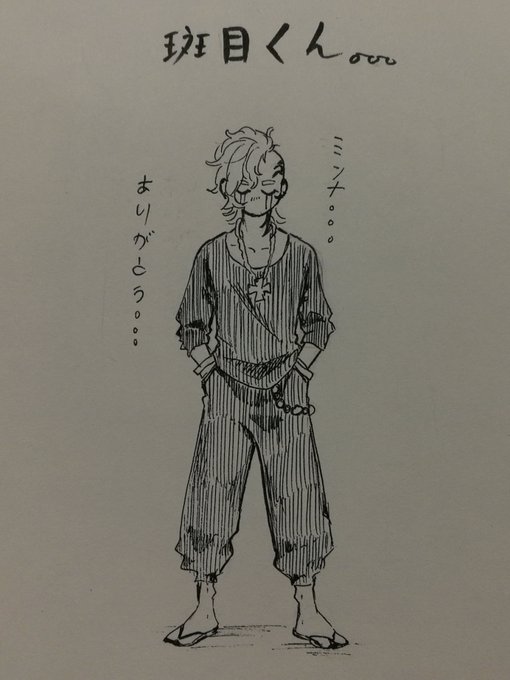 斑目くん。。。
ミンナ。。。
ありがとう。。。